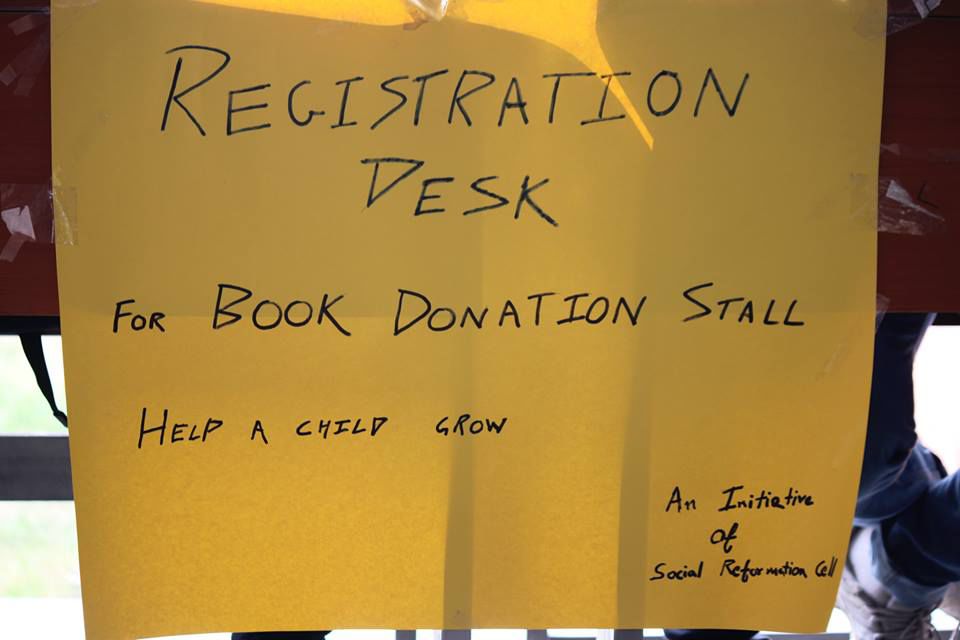 REGISTRATION
DESK
FOR BOOK DONATION STALL
HELP A CHILD GROW
An Initiative
of
Social Reformation Cell